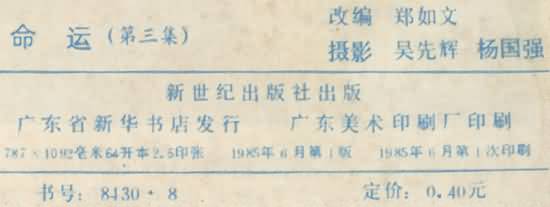 命运（第三集）
改编 郑如文
摄影 吴先辉 杨国强
新世纪出版社出版
广东省新华书店发行 广东美术印刷厂印刷
787×1092毫米64开本2.5印张 1985年6月第1版 1985年6月第1次印刷
书号：8430·8 定价：0.40元